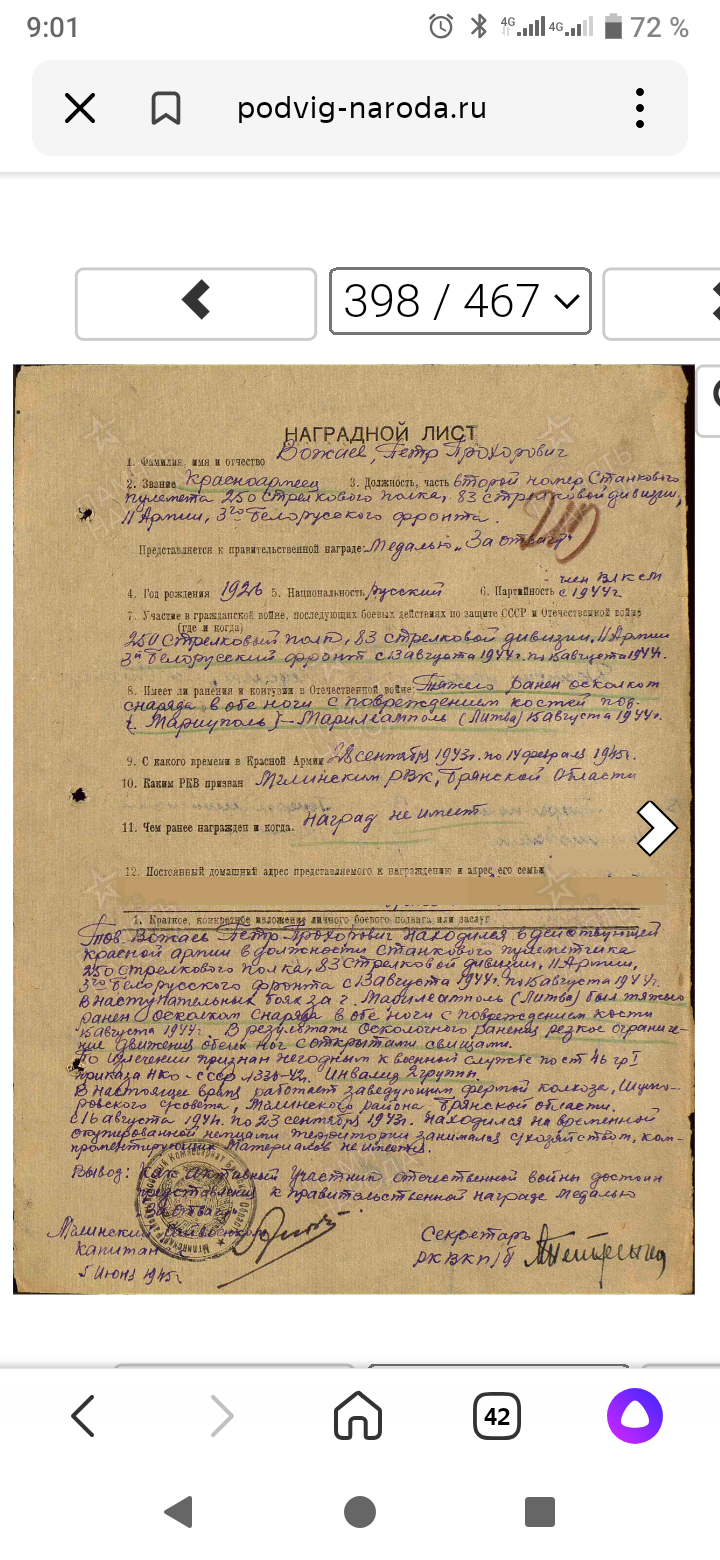 9:01
4G 4G 72 %
podvig-naroda.ru
398 / 467
НАГРАДНОЙ ЛИСТ
1. Фамилия, имя и отчество Вожаев, Петр Прохорович
2. Звание Красноармеец 3. Должность, часть второй номер Станкового
пулемета 250 стрелкового полка, 83 стрелковой дивизии,
11 Армии, 3го Белорусского фронта.
Представляется к правительственной награде: Медалью „За отвагу"
член ВЛКСМ
4. Год рождения 1926 5. Национальность русский 6. Партийность с 1944г
7. Участие в гражданской войне, последующих боевых действиях по защите СССР и Отечественной войне
(где и когда)
250 стрелковый полк, 83 стрелковой дивизии, 11 Армии
3й Белорусский фронт с 13 августа 1944г. по 15 августа 1944г.
8. Имеет ли ранения и контузии в Отечественной войне: Тяжело ранен осколком
снаряда в обе ноги с повреждением костей под
г. Мариуполь) - Марилеамполь (Литва) 15 августа 1944г.
9. С какого времени в Красной Армии 28 сентября 1943г. по 14 февраля 1945г.
10. Каким РВК призван Мглинским РВК, Брянской Области
11. Чем ранее награжден и когда. Наград не имеет
12. Постоянный домашний адрес представляемого к награждению и адрес его семьи
1. Краткое, конкретное изложение личного боевого подвига или заслуг
Тов. Вожаев Петр Прохорович находился в действующей
красной армии в должности станкового пулеметчика
250 стрелкового полка, 83 стрелковой дивизии, 11 Армии,
3го Белорусского фронта с 13 августа 1944г. по 15 августа 1944г.
В наступательных боях за г. Марилеамполь (Литва) был тяжело
ранен осколком снаряда в обе ноги с повреждением кости
15 августа 1944г. В результате осколочного ранения резкое ограниче-
ние движения обеих ног с открытами свищами.
По излечении признан негодным к военной службе по ст 46 гр I
приказа НКО-СССР 1336-42. Инвалид 2 группы.
В настоящее время работает заведующим фермой колхоза, Шумо-
ровского с/совета, Мглинского района Брянской области.
с 16 августа 1941г. по 23 сентября 1943г. находился на временной
окупированной немцами территории занимался с/хозяйством, ком-
проментирующих материалов не имеется.
Вывод: Как активный участник отечественной войны достоин
представления к правительственной награде медалью
„За отвагу"
Мглинский Райвоенком Секретарь
капитан РК ВКП/б
5 июня 1945г.
42